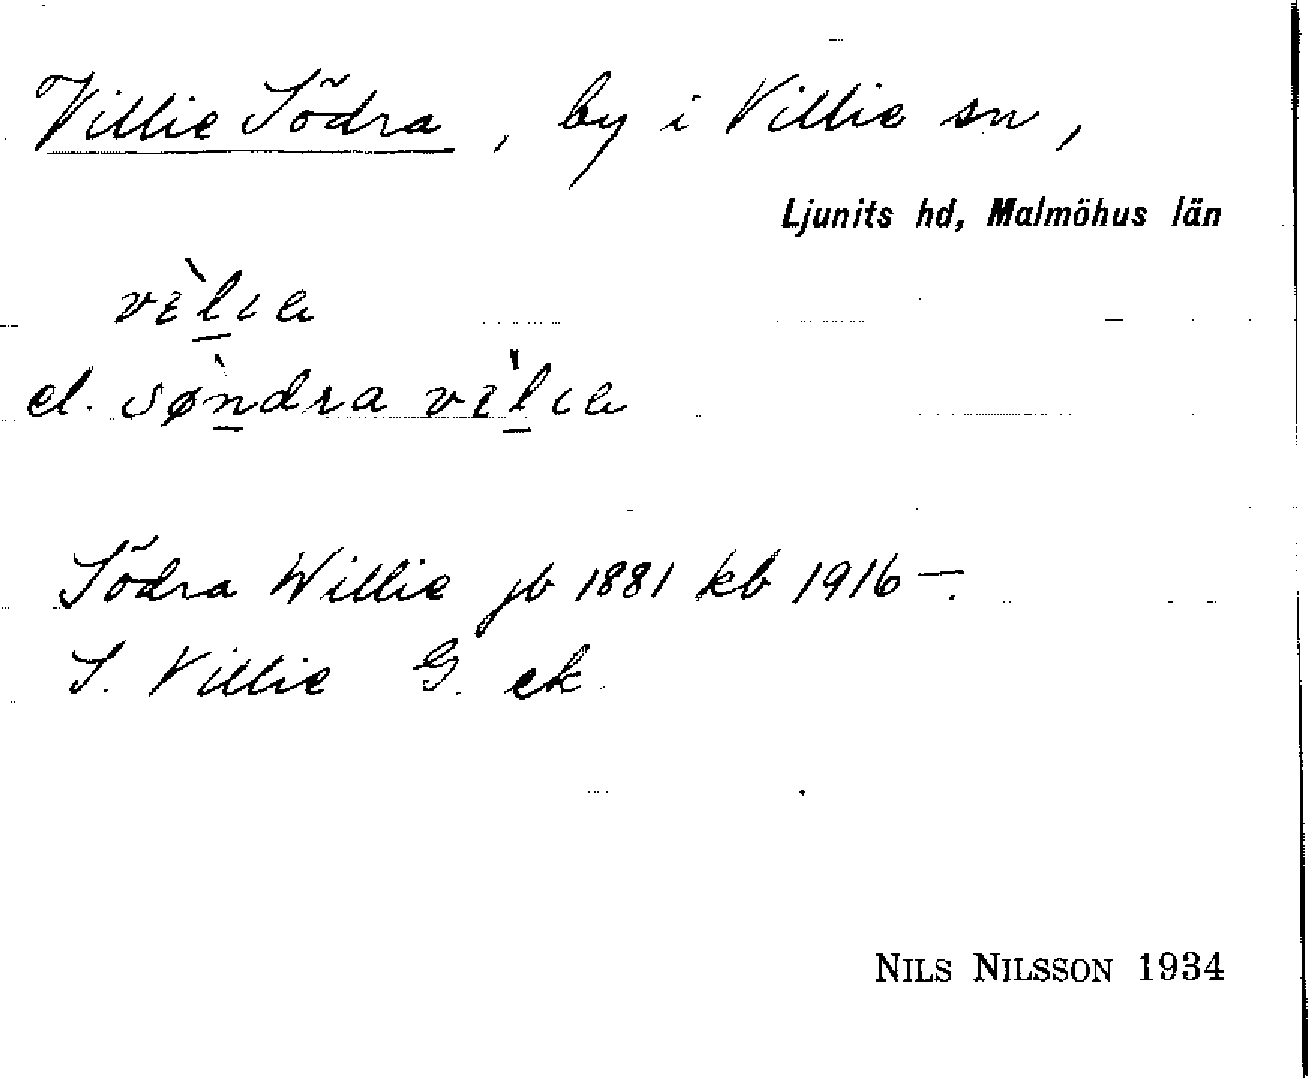 Villie Södra, by i Villie sn,
Ljunits hd, Malmöhus län
vèl̲ıɐ
el. søǹ̲dra vèl̲ıɐ
Södra Willie jb 1881 kb 1916 –.
S. Villie G. ek.
NILS NILSSON 1934